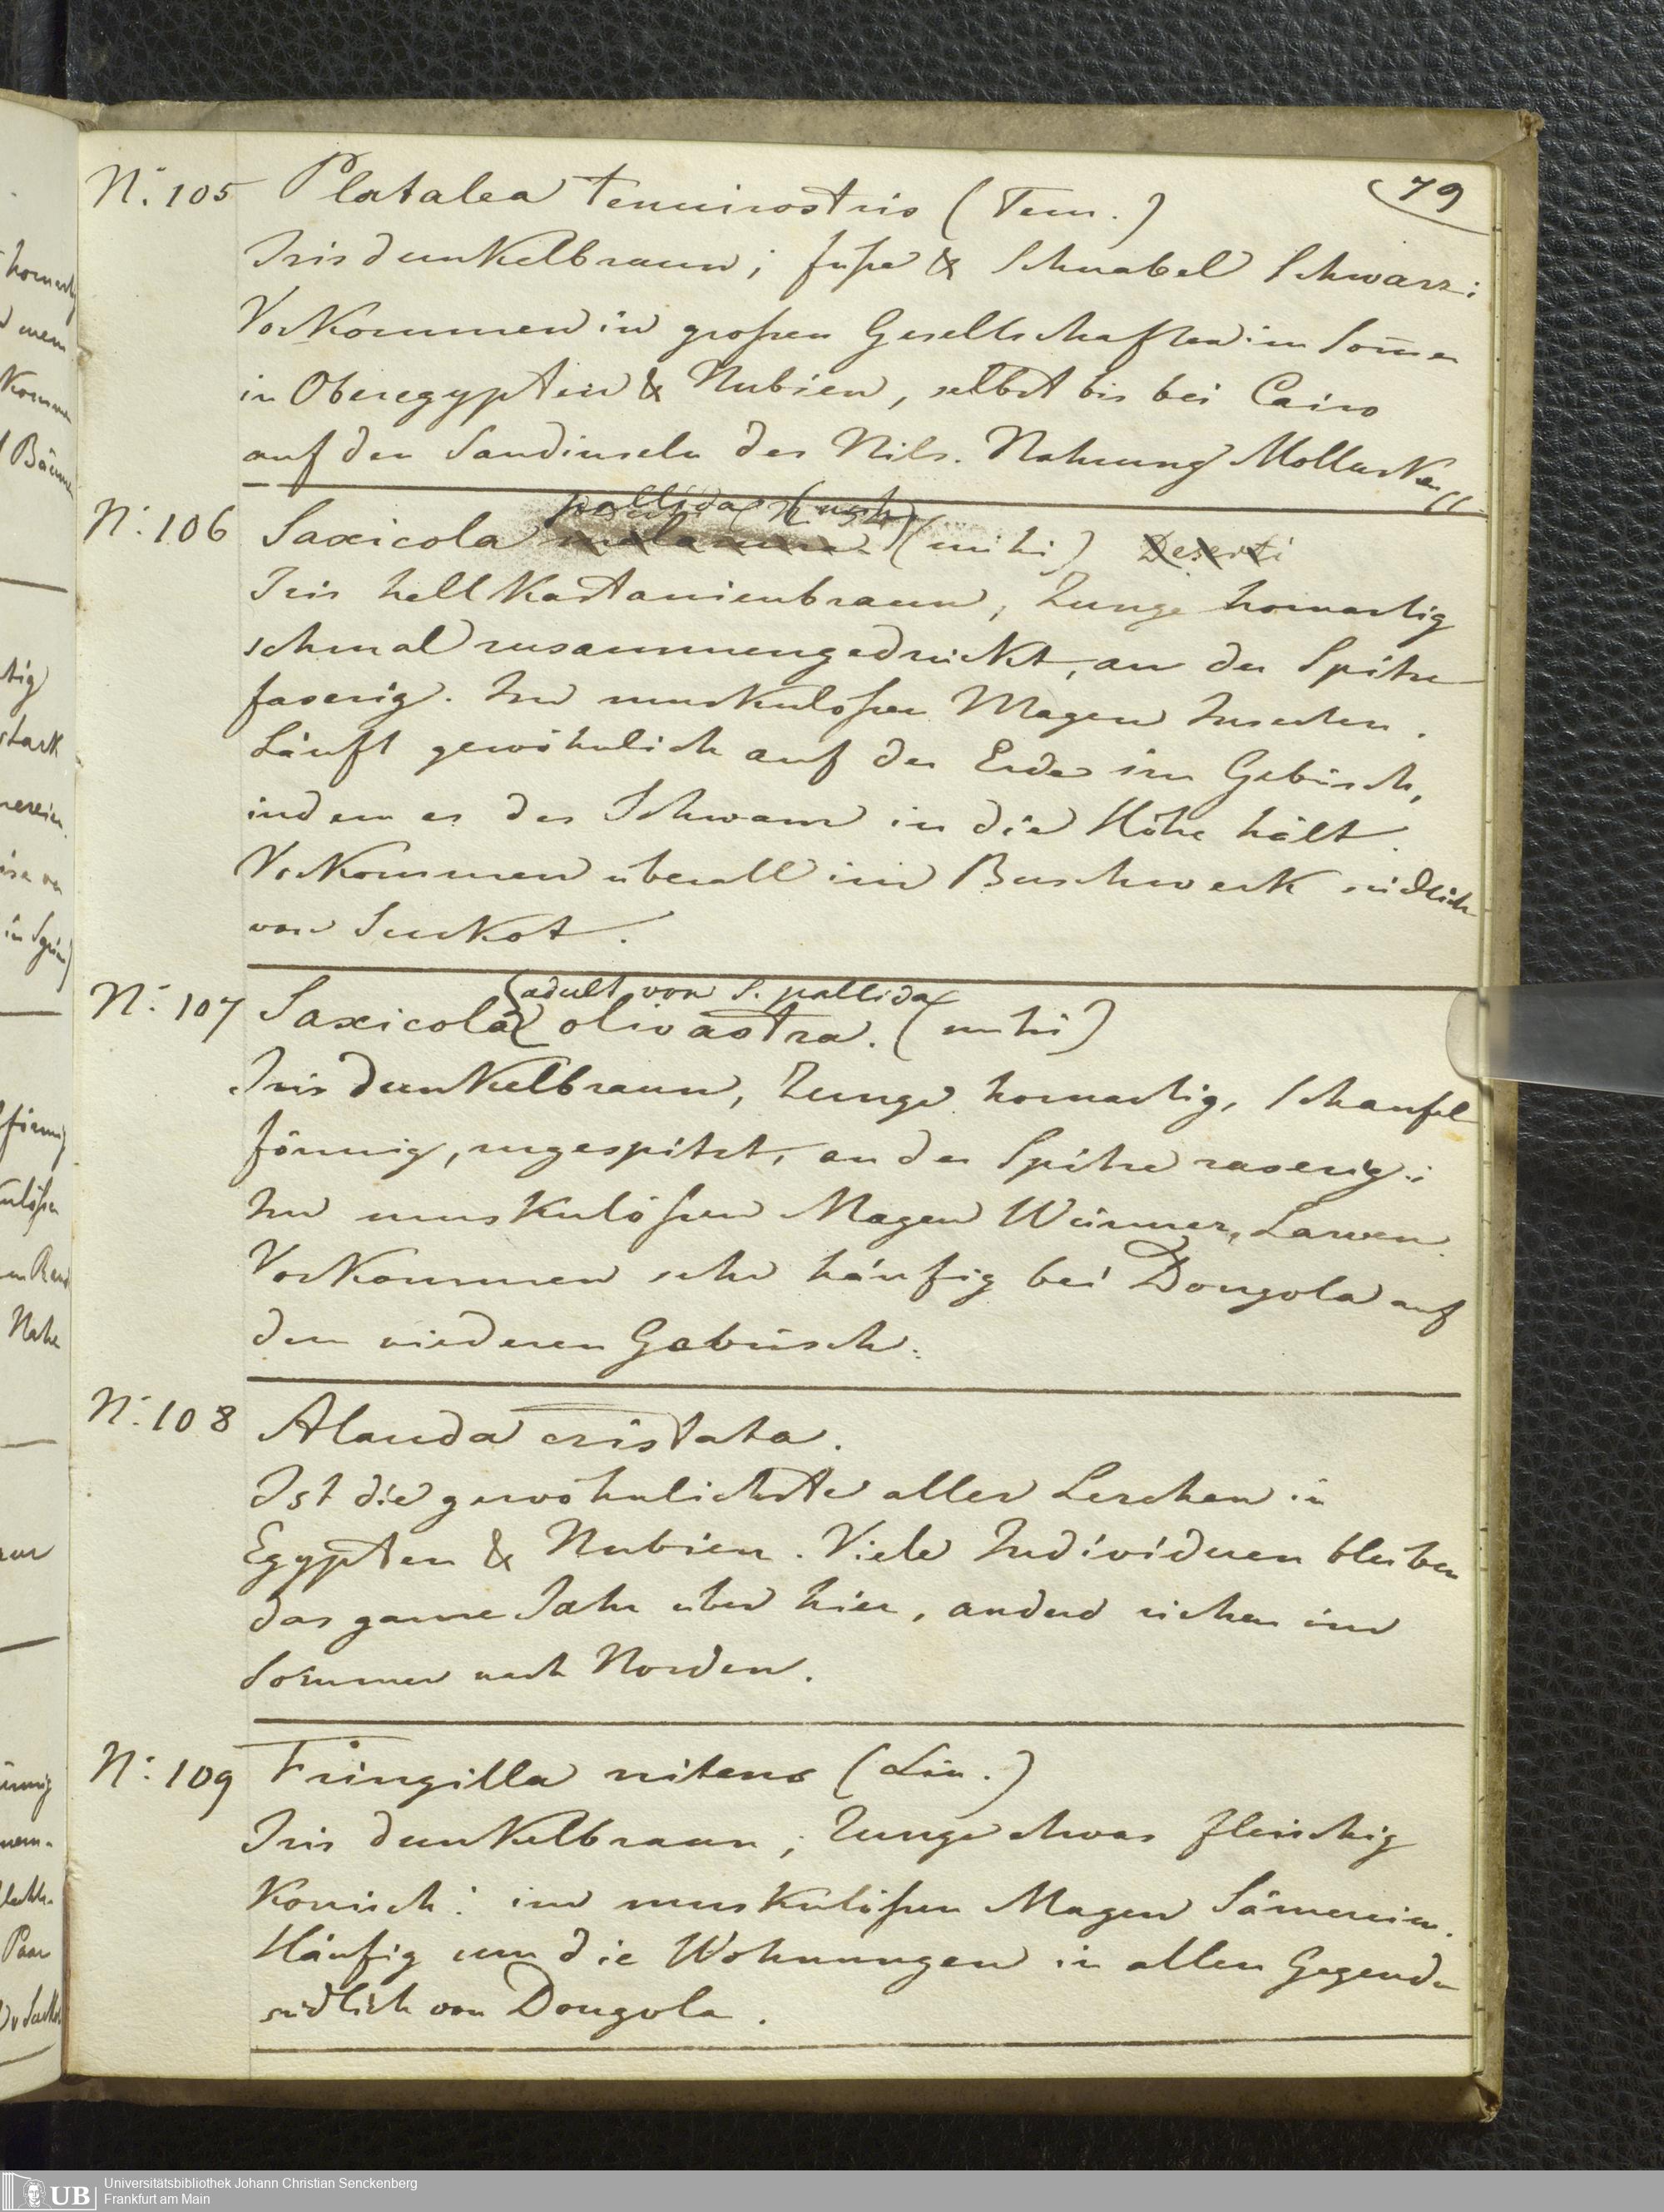 79
N: 105 Platalea tenuirostris (Tem.)
Iris dunkelbraun; fuße & Schnabel Schwarz:
Vorkommen in großen Gesellschaften im Som̄er
in Oberegypten & Nubien, selbst bis bei Cairo
auf den Sandinseln des Nils. Nahrung Mollusken
pallida (Rüsch)
N: 106 Saxicola melanura (mihi) Deserti
Iris hell Kastanienbraun, Zunge hornartig
schmal zusammengedrückt, an der Spitze
faserig. Im muskulosen Magen Insecten.
Läuft gewöhnlich auf der Erde im Gebüsch,
indem er den Schwanz in die Höhe hält.
Vorkommen uberall im Buschwerk südlich
von Sukot.
(adult von S. pallida
N: 107 Saxicola olivastra. (mihi)
Iris dunkelbraun, Zunge hornartig, Schaufel
förmig, zugespitzt, an der Spitze zaserig:
Im muskulößen Magen Würmer, Larven.
Vorkommen sehr häufig bei Dongola auf
dem niederen Gebüsch.
N: 108 Alauda cristata.
Ist die gewöhnlichste aller Lerchen in
Egypten & Nubien. Viele Individuen bleiben
das ganze Jahr über hier, andere ziehen im
Sommer nach Norden.
N: 109 Fringilla nitens (Lin.)
Iris dunkelbraun; Zunge etwas fleischig
Konisch: im muskulößen Magen Sämereien.
Häufig um die Wohnungen in allen Gegenden
südlich von Dongola.
UB
Universitätsbibliothek Johann Christian Senckenberg
Frankfurt am Main